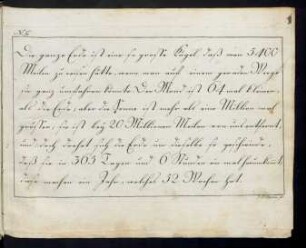 1
Die ganze Erde ist eine so große Kugel, daß man 5400
Meilen zu reisen hätte, wenn man auf einem geraden Wege
sie ganz umfahren könnte. Der Mond ist 64 mal kleiner
als die Erde, aber die Sonne ist mehr als eine Million mal
größer, sie ist bey 20 Millionen Meilen von uns entfernt,
und doch drehet sich die Erde um dieselbe so geschwinde,
daß sie in 365 Tagen und 6 Stunden
diese machen ein Jahr, welches 52 Wochen hat.